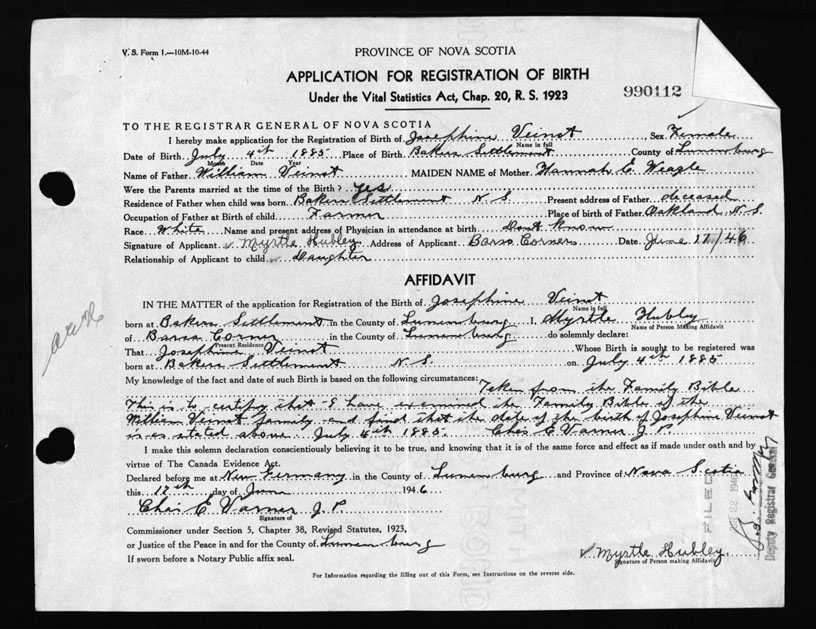 V. S. Form 1.—10M-10-44
PROVINCE OF NOVA SCOTIA
APPLICATION FOR REGISTRATION OF BIRTH
Under the Vital Statistics Act, Chap. 20, R. S. 1923
990112
TO THE REGISTRAR GENERAL OF NOVA SCOTIA
I hereby make application for the Registration of Birth of Josephine Veinot Sex Female
Name in full
Date of Birth July 4th 1885 Place of Birth Bakers Settlement County of Lunenburg
Month Date Year
Name of Father William Veinot MAIDEN NAME of Mother Hannah E. Weagle
Were the Parents married at the time of the Birth? Yes
Residence of Father when child was born Bakers Settlement N. S. Present address of Father deceased
Occupation of Father at Birth of child Farmer Place of birth of Father Oakland N. S.
Race White Name and present address of Physician in attendance at birth Dont Know
Signature of Applicant Myrtle Hubley Address of Applicant Barss Corners Date June 17/46
Relationship of Applicant to child Daughter
AFFIDAVIT
IN THE MATTER of the application for Registration of the Birth of Josephine Veinot
Name in full
born at Bakers Settlement in the County of Lunenburg I, Myrtle Hubley
Name of Person Making Affidavit
of Barss Corner in the County of Lunenburg do solemnly declare:
Present Residence
That Josephine Veinot Whose Birth is sought to be registered was
born at Bakers Settlement N. S. on July 4th 1885
My knowledge of the fact and date of such Birth is based on the following circumstances: Taken from the Family Bible
This is to certify that I have examined the Family Bible of the
William Veinot family and find that the date of the birth of Josephine Veinot
is as stated above July 4th 1885. Chas E Varner J. P.
I make this solemn declaration conscientiously believing it to be true, and knowing that it is of the same force and effect as if made under oath and by
virtue of The Canada Evidence Act.
Declared before me at New Germany in the County of Lunenburg and Province of Nova Scotia
this 17th day of June 1946
Chas E Varner J. P.
Signature of
Commissioner under Section 5, Chapter 38, Revised Statutes, 1923,
or Justice of the Peace in and for the County of Lunenburg
If sworn before a Notary Public affix seal.
Myrtle Hubley
Signature of Person making Affidavit
FILED
1946
Deputy Registrar General
For Information regarding the filling out of this Form, see Instructions on the reverse side.